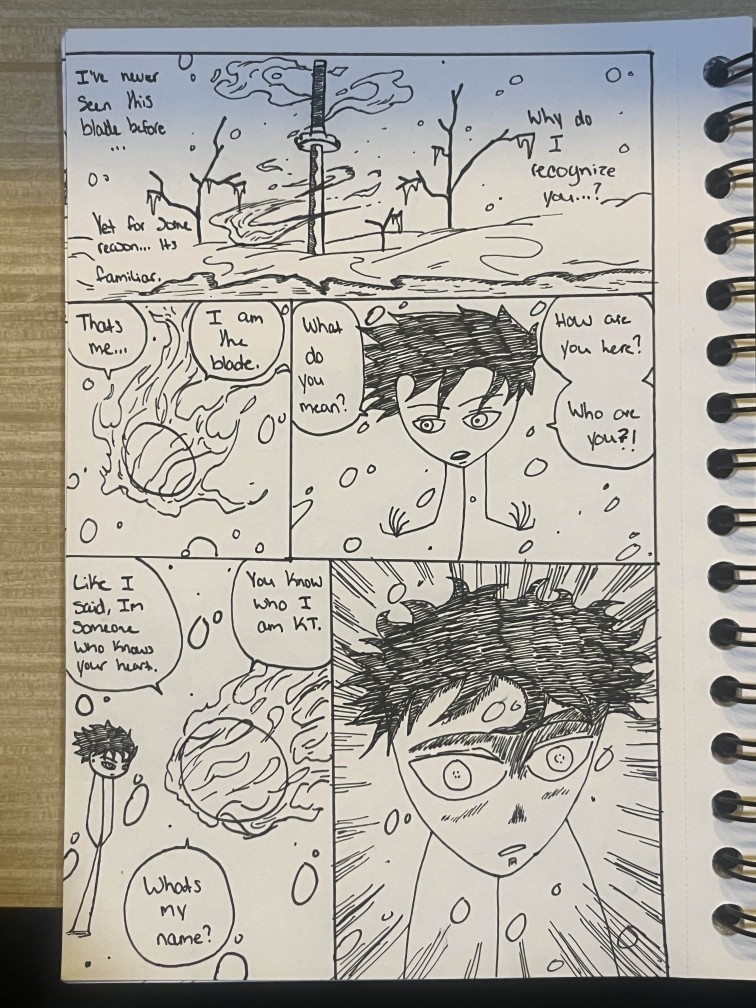 I've never
seen this
blade before
...
Yet for some
reason... its
familiar.
Why do
I
recognize
you...?
Thats
me...
I am
the
blade.
What
do
you
mean?
How are
you here?
Who are
you?!
Like I
said, Im
someone
who knows
your heart.
You know
who I
am KT.
Whats
my
name?